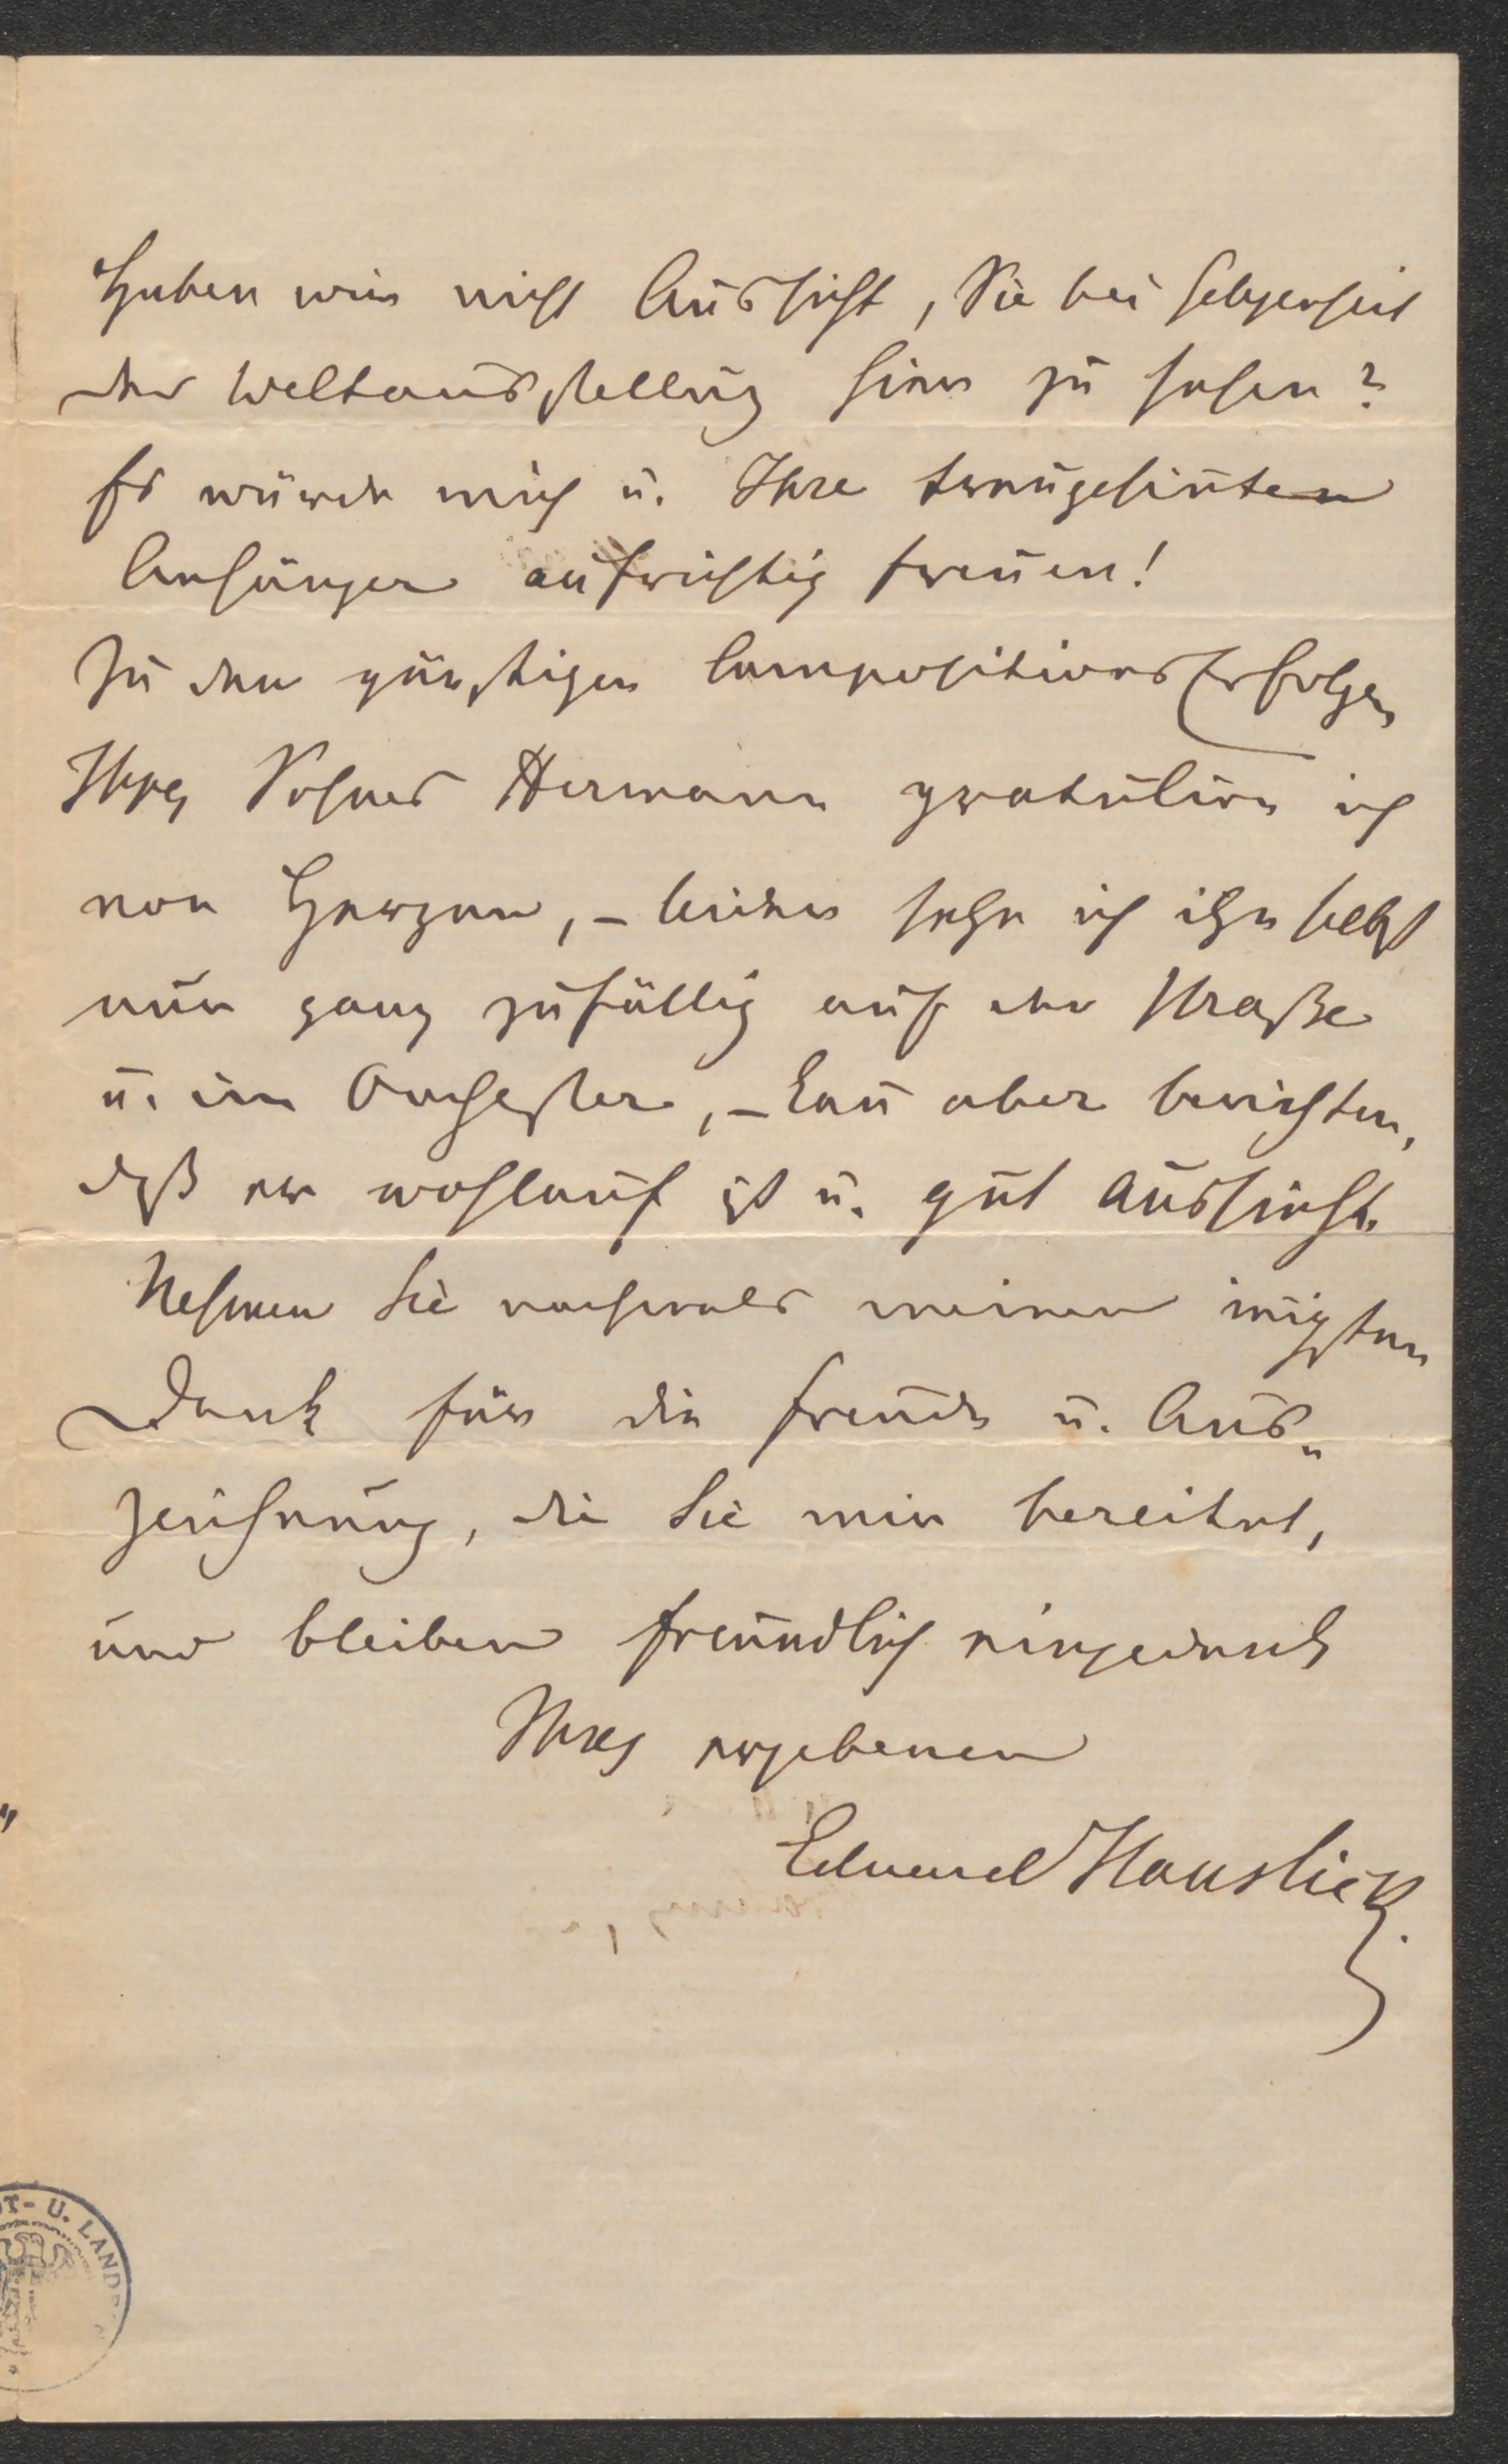 Haben wir nicht Aussicht, Sie bei Gelegenheit
der Weltausstellung hier zu sehen?
Es würde mich u. Ihre treugesin̄ten
Anhänger aufrichtig freuen!
Zu den günstigen Compositionserfolgen
Ihres Sohnes Hermann gratulire ich
von Herzen, – leider sehe ich ihn selbst
nur ganz zufällig auf der Straße
u. im Orchester, – kan̄ aber berichten,
daß er wohlauf ist u. gut aussieht.
Nehmen Sie nochmals meinen in̄igsten
Dank für die Freude u. Aus„
zeichnung, die Sie mir bereitet,
und bleiben freundlich eingedenk
Ihres ergebenen
Eduard Hanslick.
T- U. LANDE